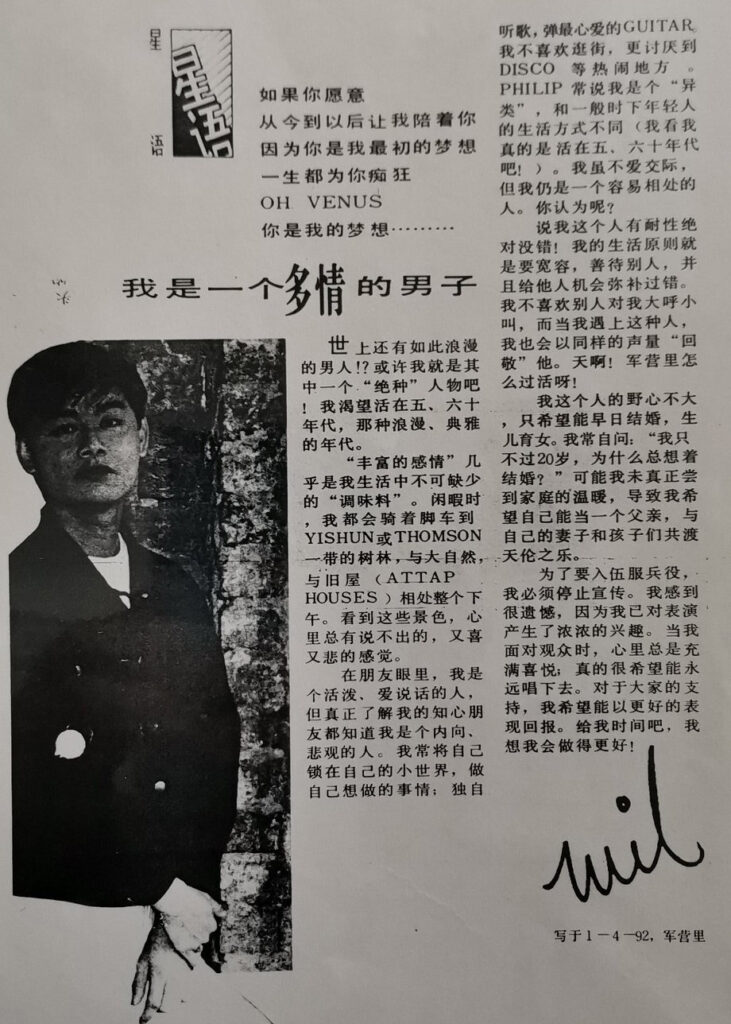 星
语
星语
如果你愿意
从今到以后让我陪着你
因为你是我最初的梦想
一生都为你痴狂
OH VENUS
你是我的梦想………
我是一个多情的男子
世上还有如此浪漫
的男人!？或许我就是其
中一个“绝种”人物吧
！我渴望活在五、六十
年代，那种浪漫、典雅
的年代。
“丰富的感情”几
乎是我生活中不可缺少
的“调味料”。闲暇时
，我都会骑着脚车到
YISHUN或THOMSON
一带的树林，与大自然，
与旧屋（ATTAP
HOUSES）相处整个下
午。看到这些景色，心
里总有说不出的，又喜
又悲的感觉。
在朋友眼里，我是
个活泼、爱说话的人，
但真正了解我的知心朋
友都知道我是个内向、
悲观的人。我常将自己
锁在自己的小世界，做
自己想做的事情；独自
听歌，弹最心爱的GUITAR。
我不喜欢逛街，更讨厌到
DISCO 等热闹地方。
PHILIP 常说我是个“异
类”，和一般时下年轻人
的生活方式不同（我看我
真的是活在五、六十年代
吧！）。我虽不爱交际，
但我仍是一个容易相处的
人。你认为呢？
说我这个人有耐性绝
对没错！我的生活原则就
是要宽容，善待别人，并
且给他人机会弥补过错。
我不喜欢别人对我大呼小
叫，而当我遇上这种人，
我也会以同样的声量“回
敬”他。天啊！军营里怎
么过活呀！
我这个人的野心不大
，只希望能早日结婚，生
儿育女。我常自问：“我只
不过20岁，为什么总想着
结婚？”可能我未真正尝
到家庭的温暖，导致我希
望自己能当一个父亲，与
自己的妻子和孩子们共渡
天伦之乐。
为了要入伍服兵役，
我必须停止宣传。我感到
很遗憾，因为我已对表演
产生了浓浓的兴趣。当我
面对观众时，心里总是充
满喜悦；真的很希望能永
远唱下去。对于大家的支
持，我希望能以更好的表
现回报。给我时间吧，我
想我会做得更好！
写于1－4－92，军营里